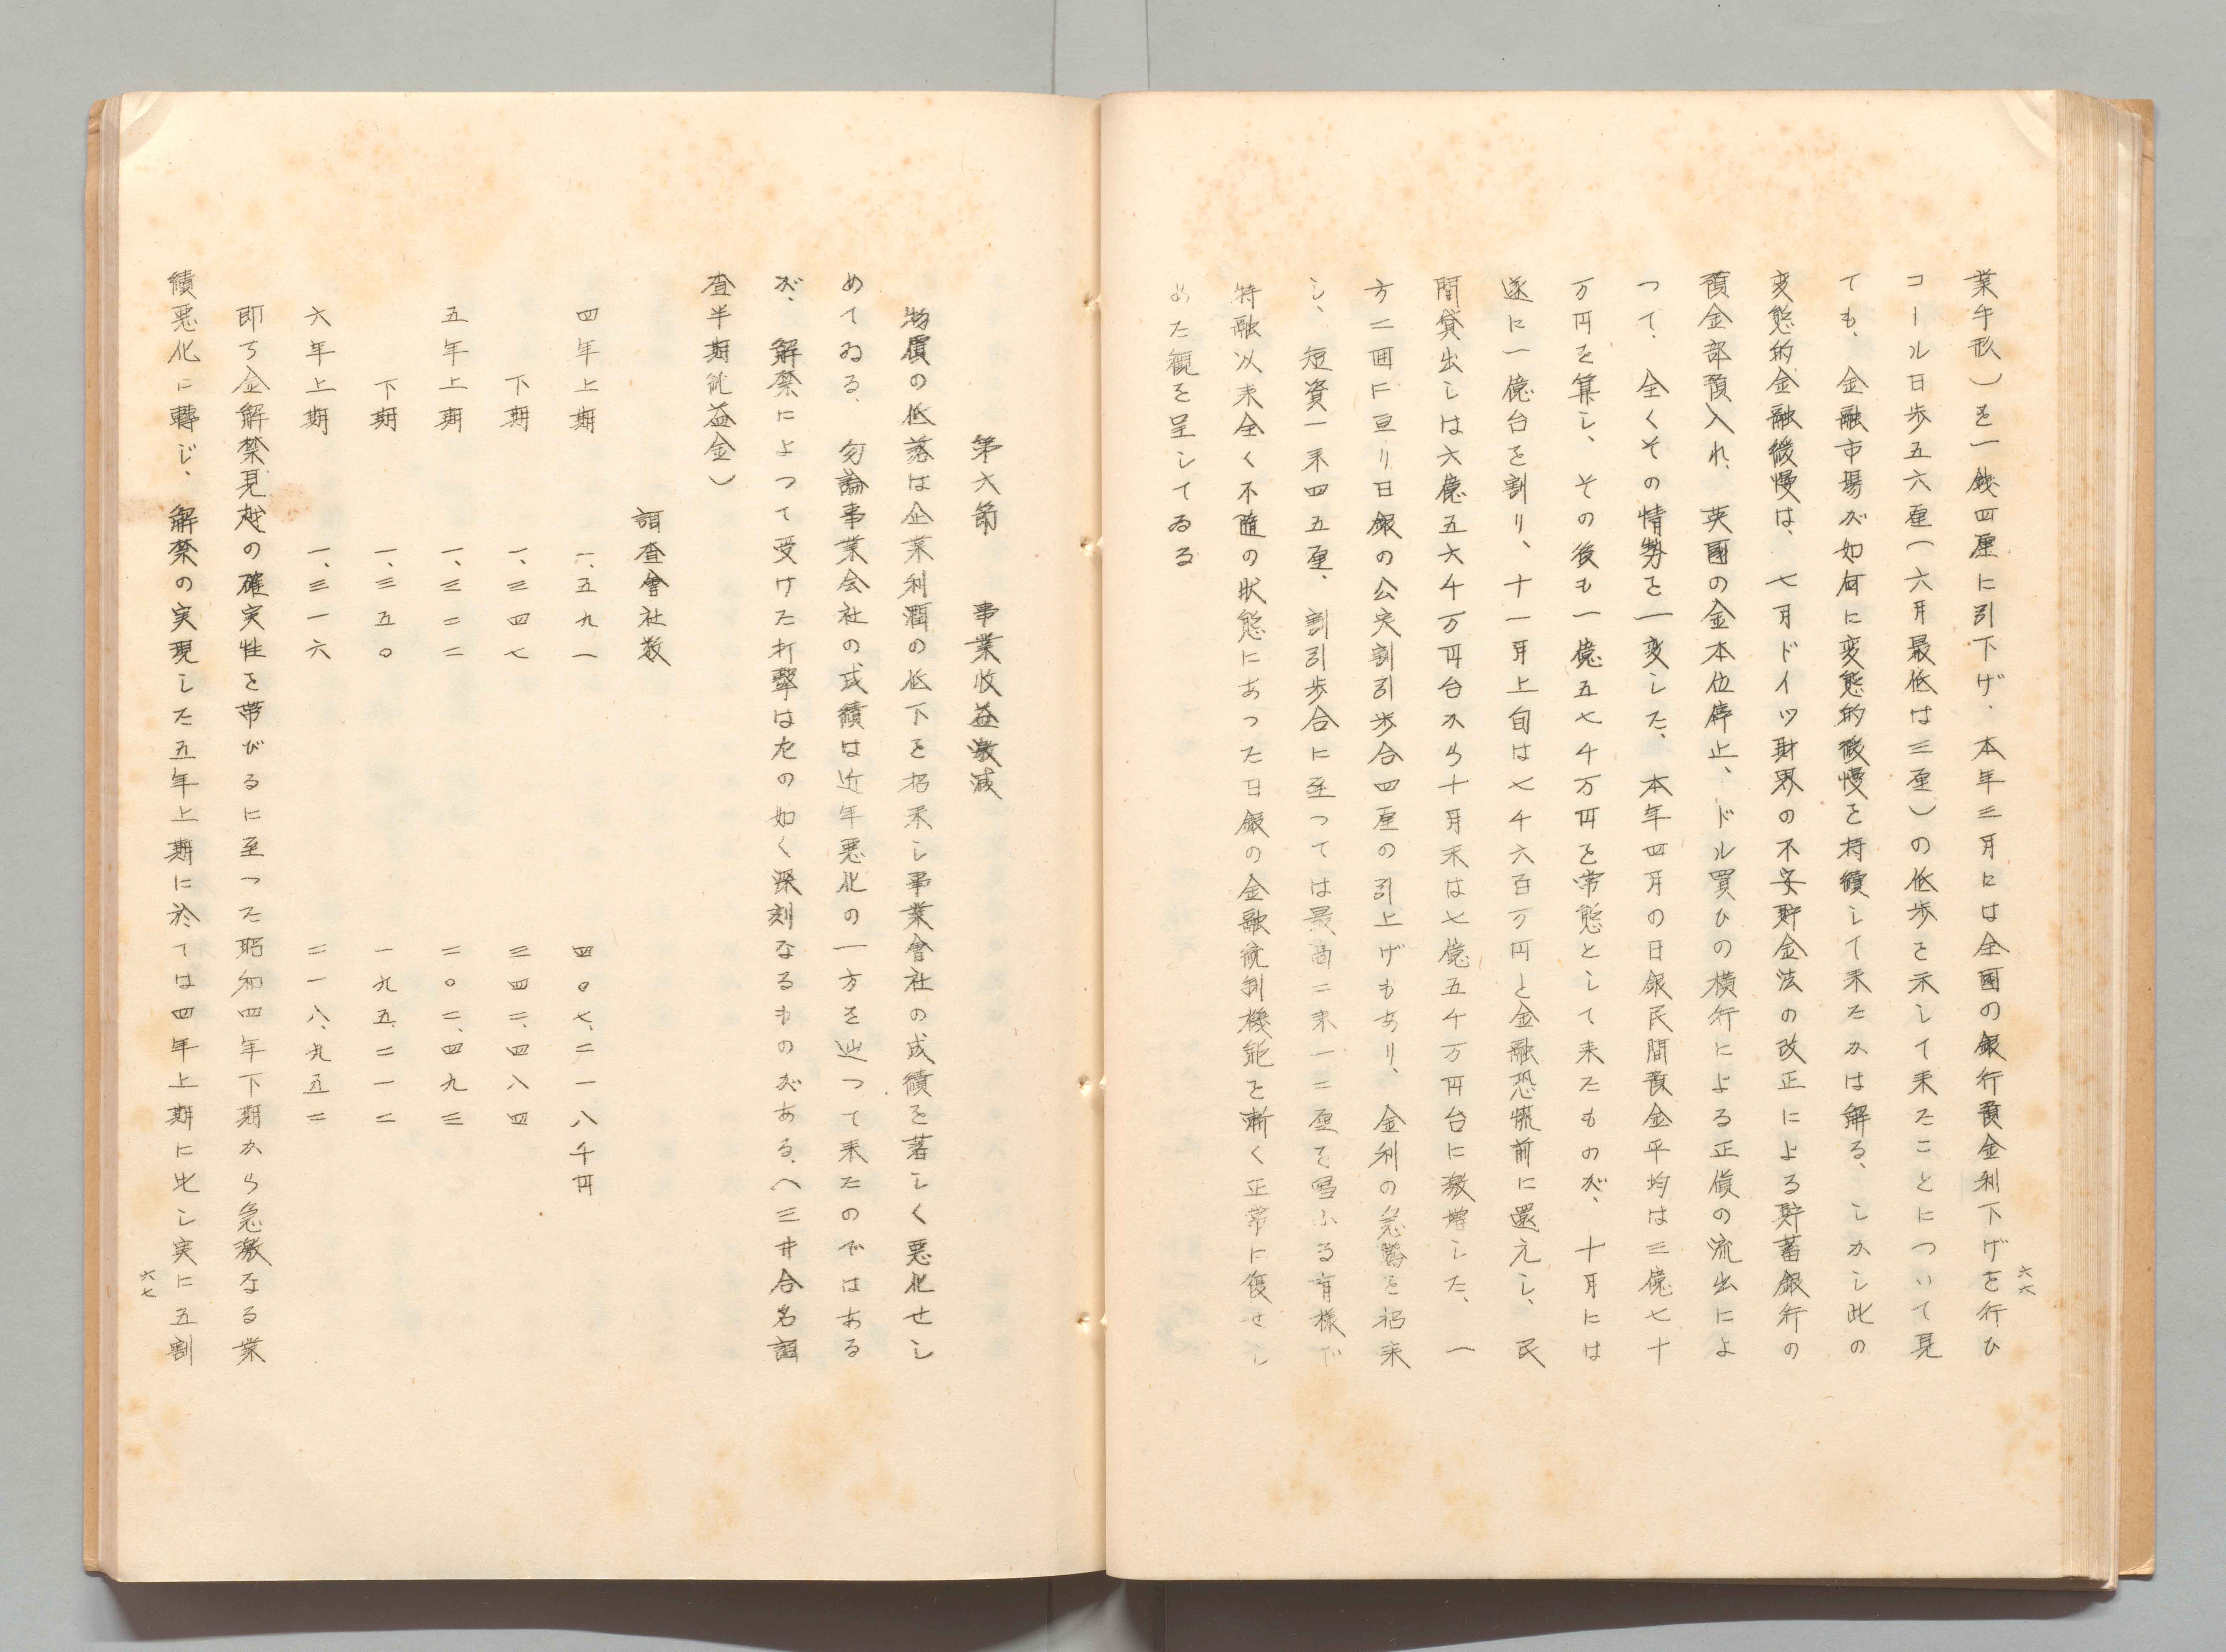 業手形）を一銭四厘に引下げ、本年三月には全國の銀行預金利下げを行ひ
コール日歩五六厘（六月最低は三厘）の低歩を示して来たことについて見
ても、金融市場が如何に変態的緩慢を持續して来たかは解る、しかし此の
変態的金融緩慢は、七月ドイツ財界の不安貯金法の改正による貯蓄銀行の
預金部預入れ、英國の金本位停止、ドル買ひの横行による正貨の流出によ
つて、全くその情勢を一変した、本年四月の日銀民間預金平均は三億七十
万円を算し、その後も一億五七千万円を常態として来たものが、十月には
遂に一億台を割り、十一月上旬は七千六百万円と金融恐慌前に還元し、民
間貸出しは六億五六千万円台から十月末は七億五千万円台に激増した、一
方二囬に亘り日銀の公定割引歩合四厘の引上げもあり、金利の急騰を招来
し、短資一釆四五厘、割引歩合に至つては最高二釆一二厘を唱ふる有様で
特融以来全く不随の状態にあつた日銀の金融統制機能を漸く正常に復せし
めた観を呈してゐる
六六
第六節　事業收益激減
物價の低落は企業利潤の低下を招来し事業會社の成績を著しく悪化せし
めてゐる、勿論事業会社の成績は近年悪化の一方を辿つて来たのではある
が、解禁によつて受けた打撃は左の如く深刻なるものがある、（三井合名調
査半期純益金）
調査會社数
四年上期　一、五九一　四〇七、二一八千円
下期　一、三四七　三四二、四八四
五年上期　一、三二二　二〇二、四九三
下期　一、三五〇　一九五、二一二
六年上期　一、三一六　二一八、九五二
即ち金解禁見越の確実性を帯びるに至つた昭和四年下期から急激なる業
績悪化に轉じ、解禁の実現した五年上期に於ては四年上期に比し実に五割
六七